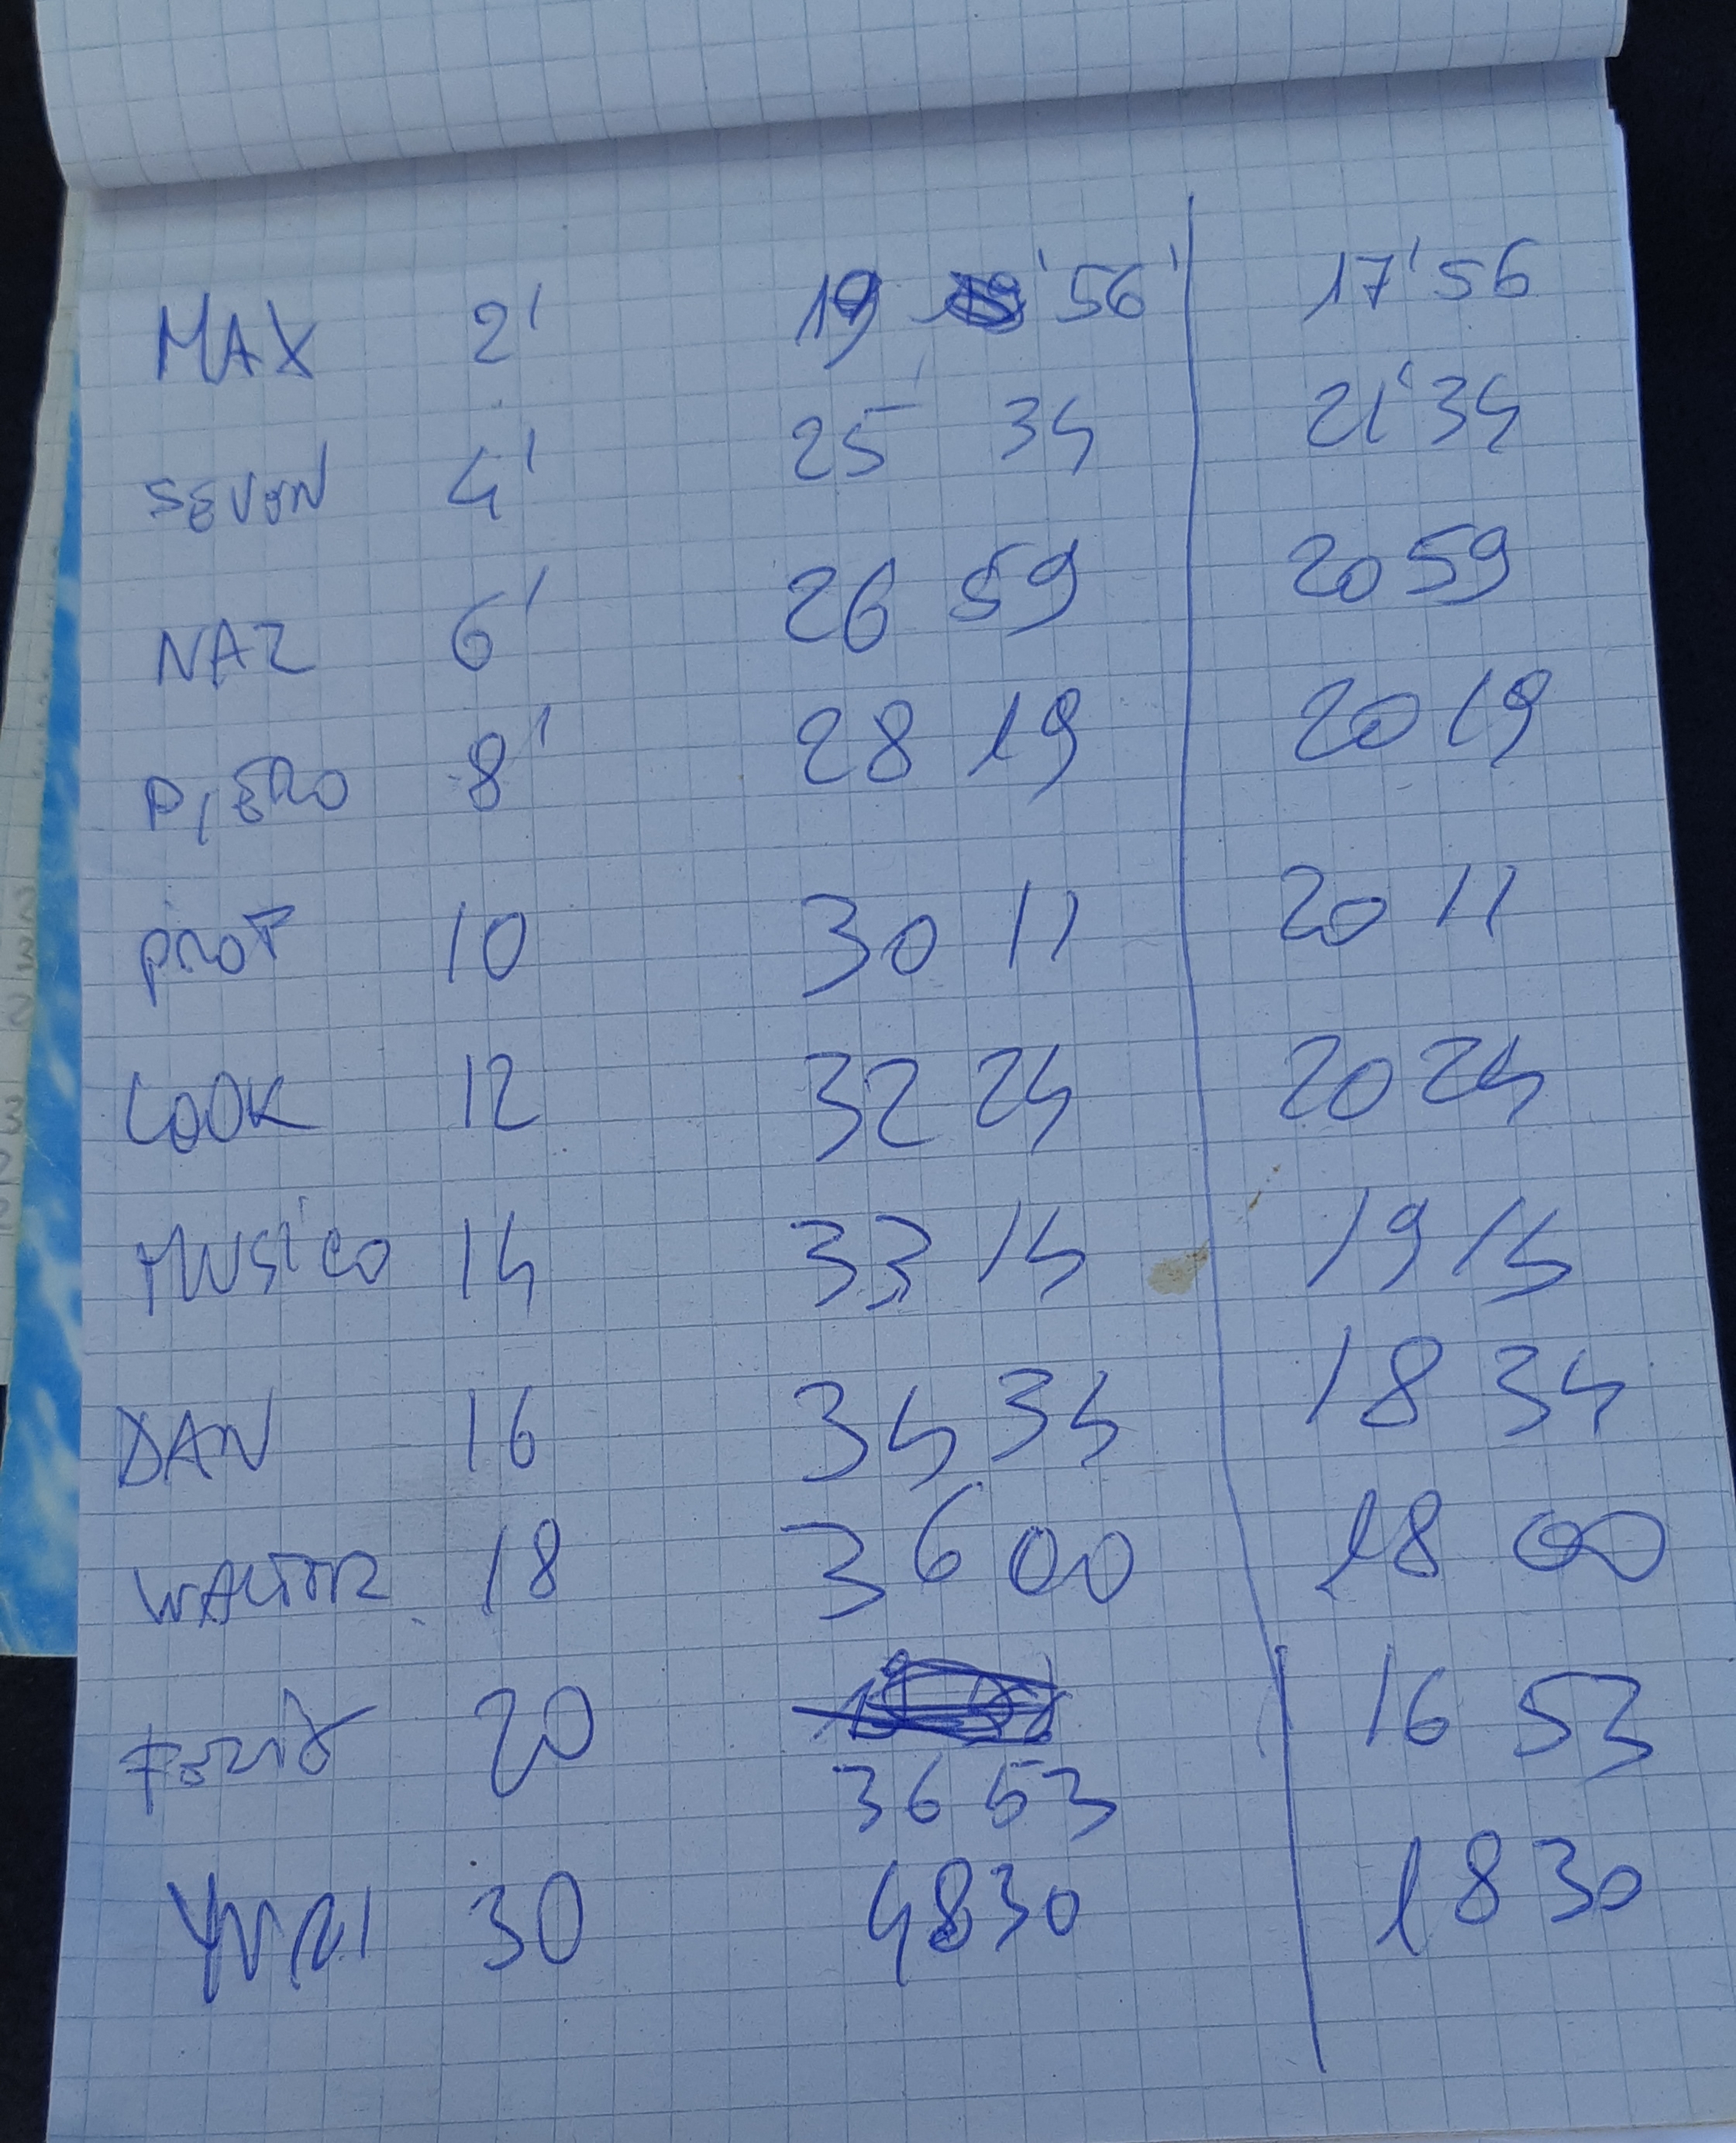 MAX 2' 19 '56' 17'56
SEVEN 4' 25' 34 21'34
NAZ 6' 26 59 20 59
PIERO 8' 28 19 20 19
PROF 10 30 11 20 11
COOK 12 32 24 20 24
MUSICO 14 33 14 19 14
DAN 16 34 34 18 34
WALTER 18 36 00 18 00
20 16 53
36 53
YURI 30 48 30 18 30